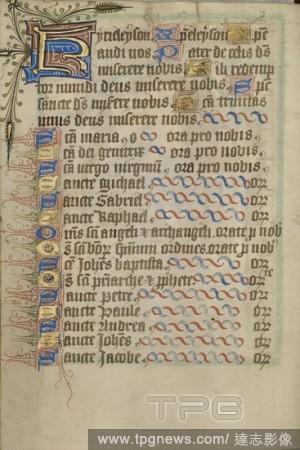 Kyrieleyson Xpeleyson Xpe
audi nos Pater de celis ds
miserere nobis Fili redemp
tor mundi deus miserere nobis Spc
sancte ds miserere nobis Sca trinitas
unus deus miserere nobis
Sca maria o ora pro nobis
Sca dei genitrix ora pro nobis
Sca virgo virginum ora pro nobis
Sancte Michael or
Sancte Gabriel or
Sancte Raphael or
Oms sci angeli et archangeli orate pro nob
Oms sci bor spirituum ordines orate pro nob
Sancte Johes baptista or
Oms sci priarche et prophete orate
Sancte Petre or
Sancte Paule or
Sancte Andrea or
Sancte Johes or
Sancte Jacobe or
TPG
www.tpgnews.com/ 達志影像